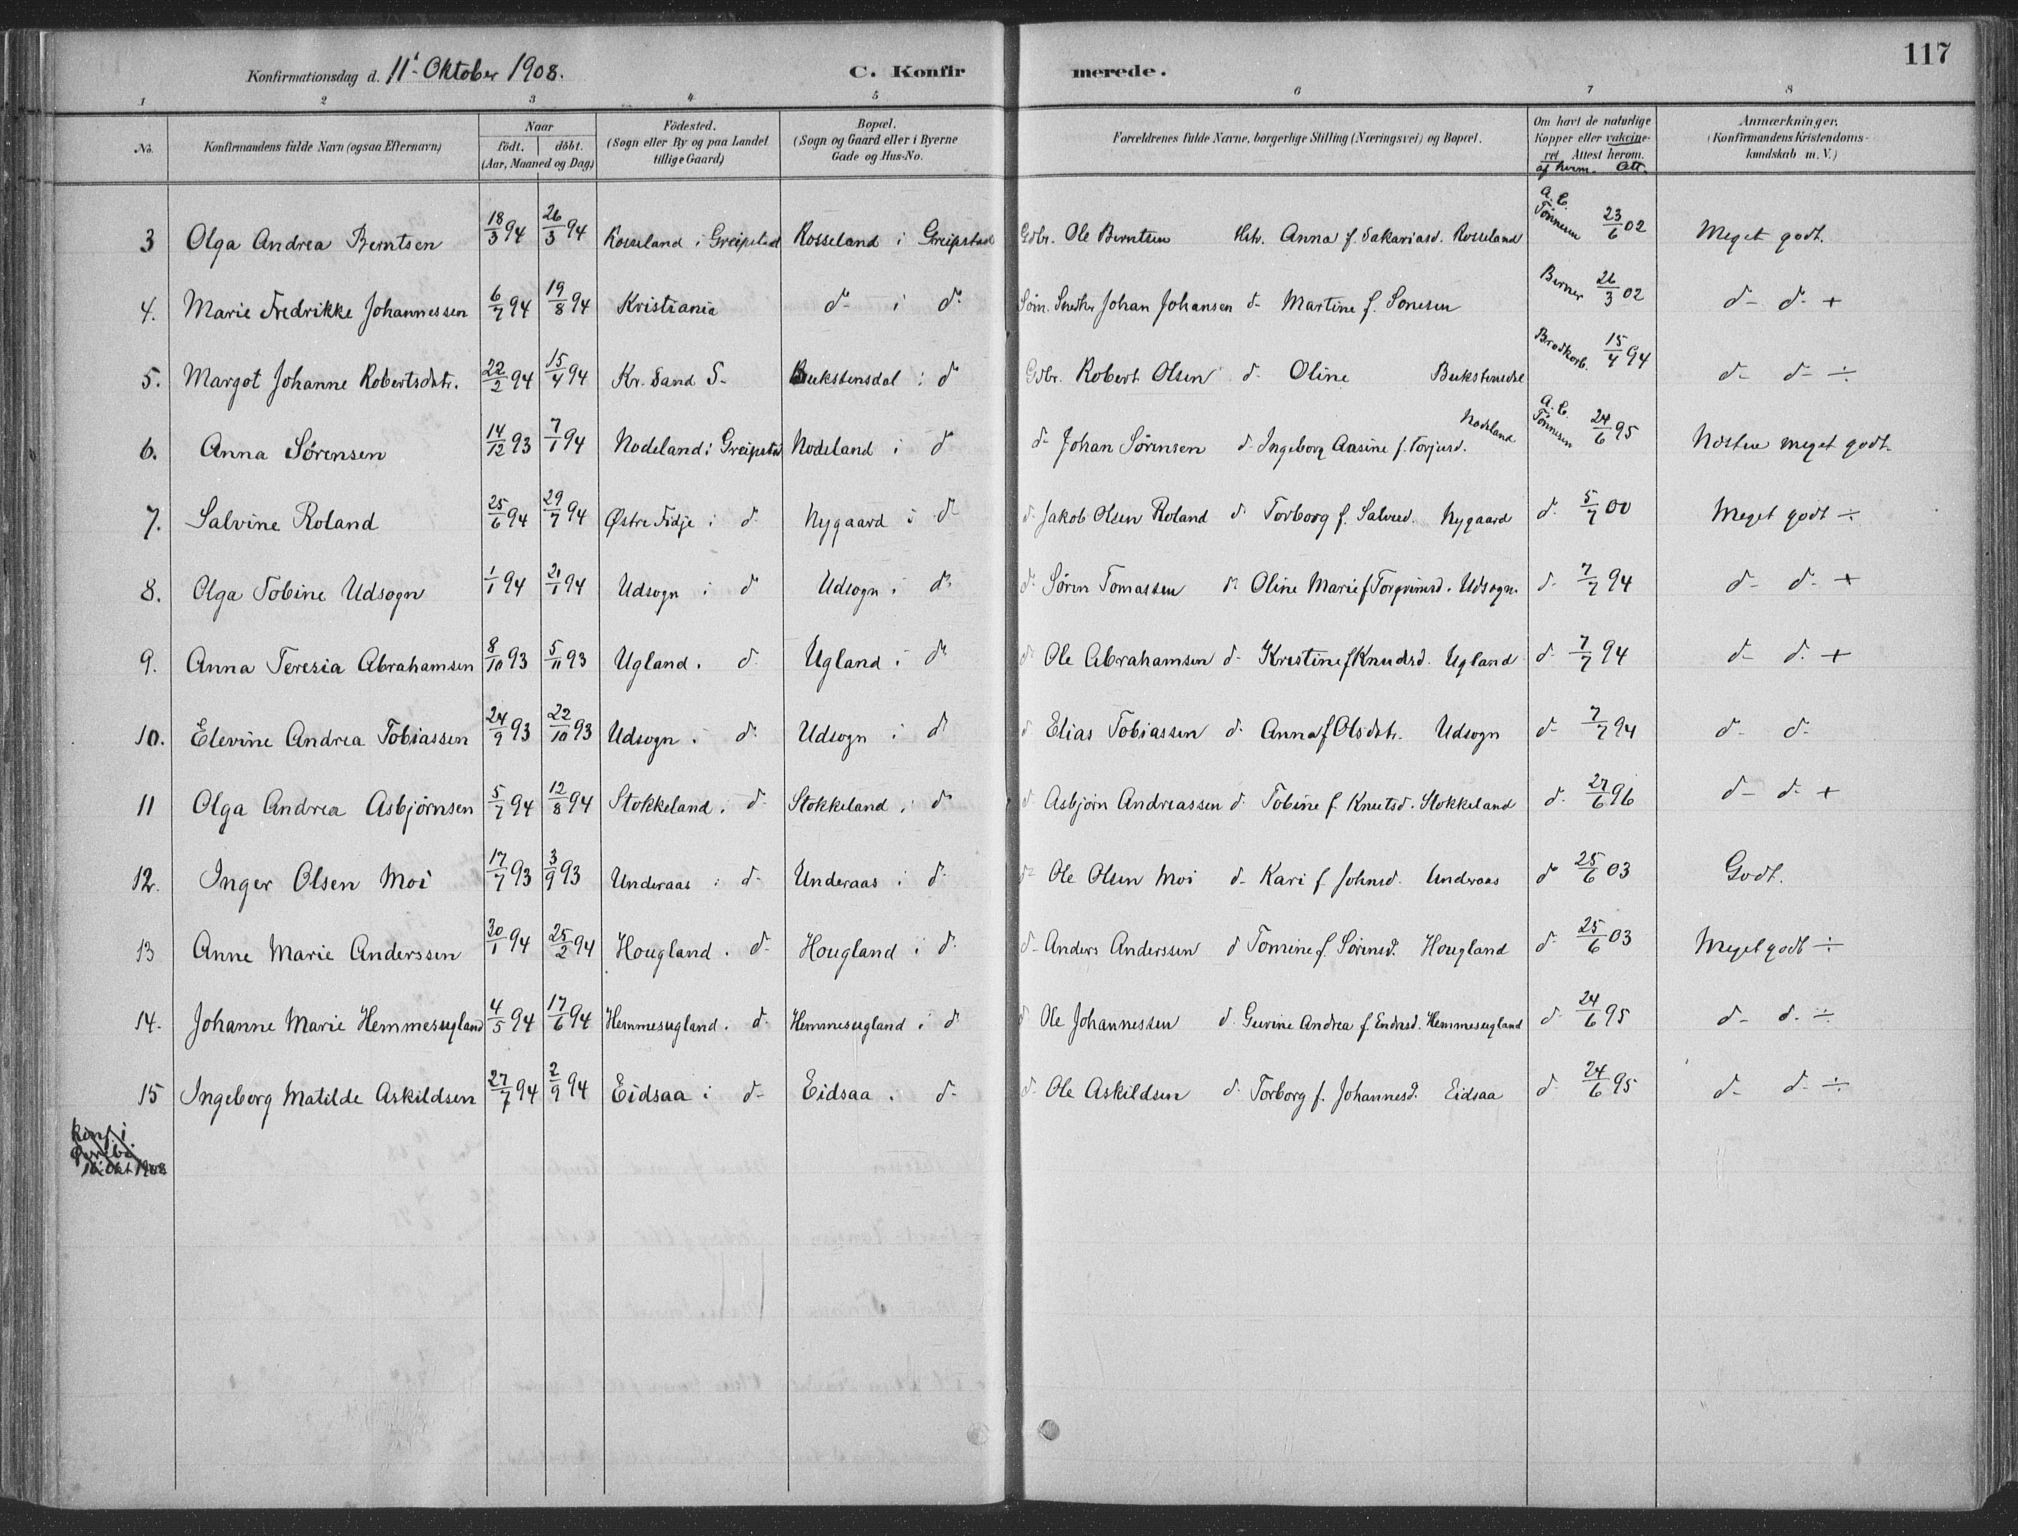 117
Konfirmationsdag d. 11' Oktober 1908. C. Konfirmerede.
1 2 3 4 5 6 7 8
No. Konfirmandens fulde Navn (ogsaa Efternavn)
Naar
født. døbt.
(Aar, Maaned og Dag)
Födested.
(Sogn eller By og paa Landet
tillige Gaard)
Bopæl.
(Sogn og Gaard eller i Byerne
Gade og Hus-No.
Forældrenes fulde Navne, borgerlige Stilling (Næringsvei) og Bopæl.
Om havt de naturlige
Kopper eller vakcine-
ret Attest herom.
af hvem. Att.
Anmærkninger.
(Konfirmandens Kristendoms-
kundskab m. V.)
3 Olga Andrea Berntsen 18/3 94 26/3 94 Rosseland i Greipstad Rosseland i Greipstad Gdbr. Ole Berntsen Hstr. Anna f. Sakariasd. Rosseland A. C. Tønnesen 23/6 02 Meget godt.
4. Marie Fredrikke Johannessen 6/7 94 19/8 94 Kristiania d- i d- Snedker Johan Johansen d- Martine f. Berner 26/3 02 d- d- +
5. Margot Johanne Robertsdtr. 22/2 94 15/4 94 Kr. Sand S- Bukstensdal i d- Gdbr. Robert Olsen d- Oline Bukstensdal Brodkorb. 15/4 94 d- d- ÷
6. Anna Sørensen 14/12 93 7/1 94 Nodeland i Greipstad Nodeland i d- d- Johan Sørensen d- Ingeborg Aasine f. Torjusd. Nodeland A. C. Tønnesen 24/6 95 Næsten meget godt.
7. Salvine Roland 25/6 94 29/7 94 Østre Fidje i d- Nygaard i d- d- Jakob Olsen Roland d- Torborg f. Salved. Nygaard d- 5/7 00 Meget godt ÷
8. Olga Tobine Udsogn 1/1 94 21/1 94 Udsogn i d- Udsogn i d- d- Søren Tomassen d- Oline Marie f. Udsogn. d- 7/7 94 d- d- +
9. Anna Teresia Abrahamsen 8/10 93 5/11 93 Ugland i d- Ugland i d- d- Ole Abrahamsen d- Kristine f Knudsd. Ugland d- 7/7 94 d- d- +
10. Elevine Andrea Tobiassen 24/9 93 22/10 93 Udsogn i d- Udsogn i d- d- Elias Tobiassen d- Anna f Olsdtr. Udsogn d- 7/7 94 d- d-
11 Olga Andrea Asbjørnsen 5/7 94 12/8 94 Stokkeland i d- Stokkeland i d- d- Asbjørn Andreassen d- Tobine f. Knutsd. Stokkeland d- 27/6 96 d- d- +
12. Inger Olsen Moi 17/7 93 3/9 93 Underaas i d- Underaas i d- d- Ole Olsen Moi d- Kari f. Johnsd. Underaas d- 25/6 03 Godt.
13 Anne Marie Anderssen 30/1 94 25/2 94 Hougland i d- Hougland i d- d- Anders Anderssen d- Tomine f. Sørensd. Hougland d- 25/6 03 Meget godt ÷
14. Johanne Marie Hemmesugland 4/5 94 17/6 94 Hemmesugland i d- Hemmesugland i d- d- Ole Johannessen d- Gurine Andrea f. Endresd. Hemmesugland d- 24/6 95 d- d- ÷
15 Ingeborg Matilde Askildsen 27/7 94 2/9 94 Eidsaa i d- Eidsaa i d- d- Ole Askildsen d- Torborg f. Johannesd. Eidsaa d- 24/6 95 d- d- ÷
Konf. i
Okt 1908